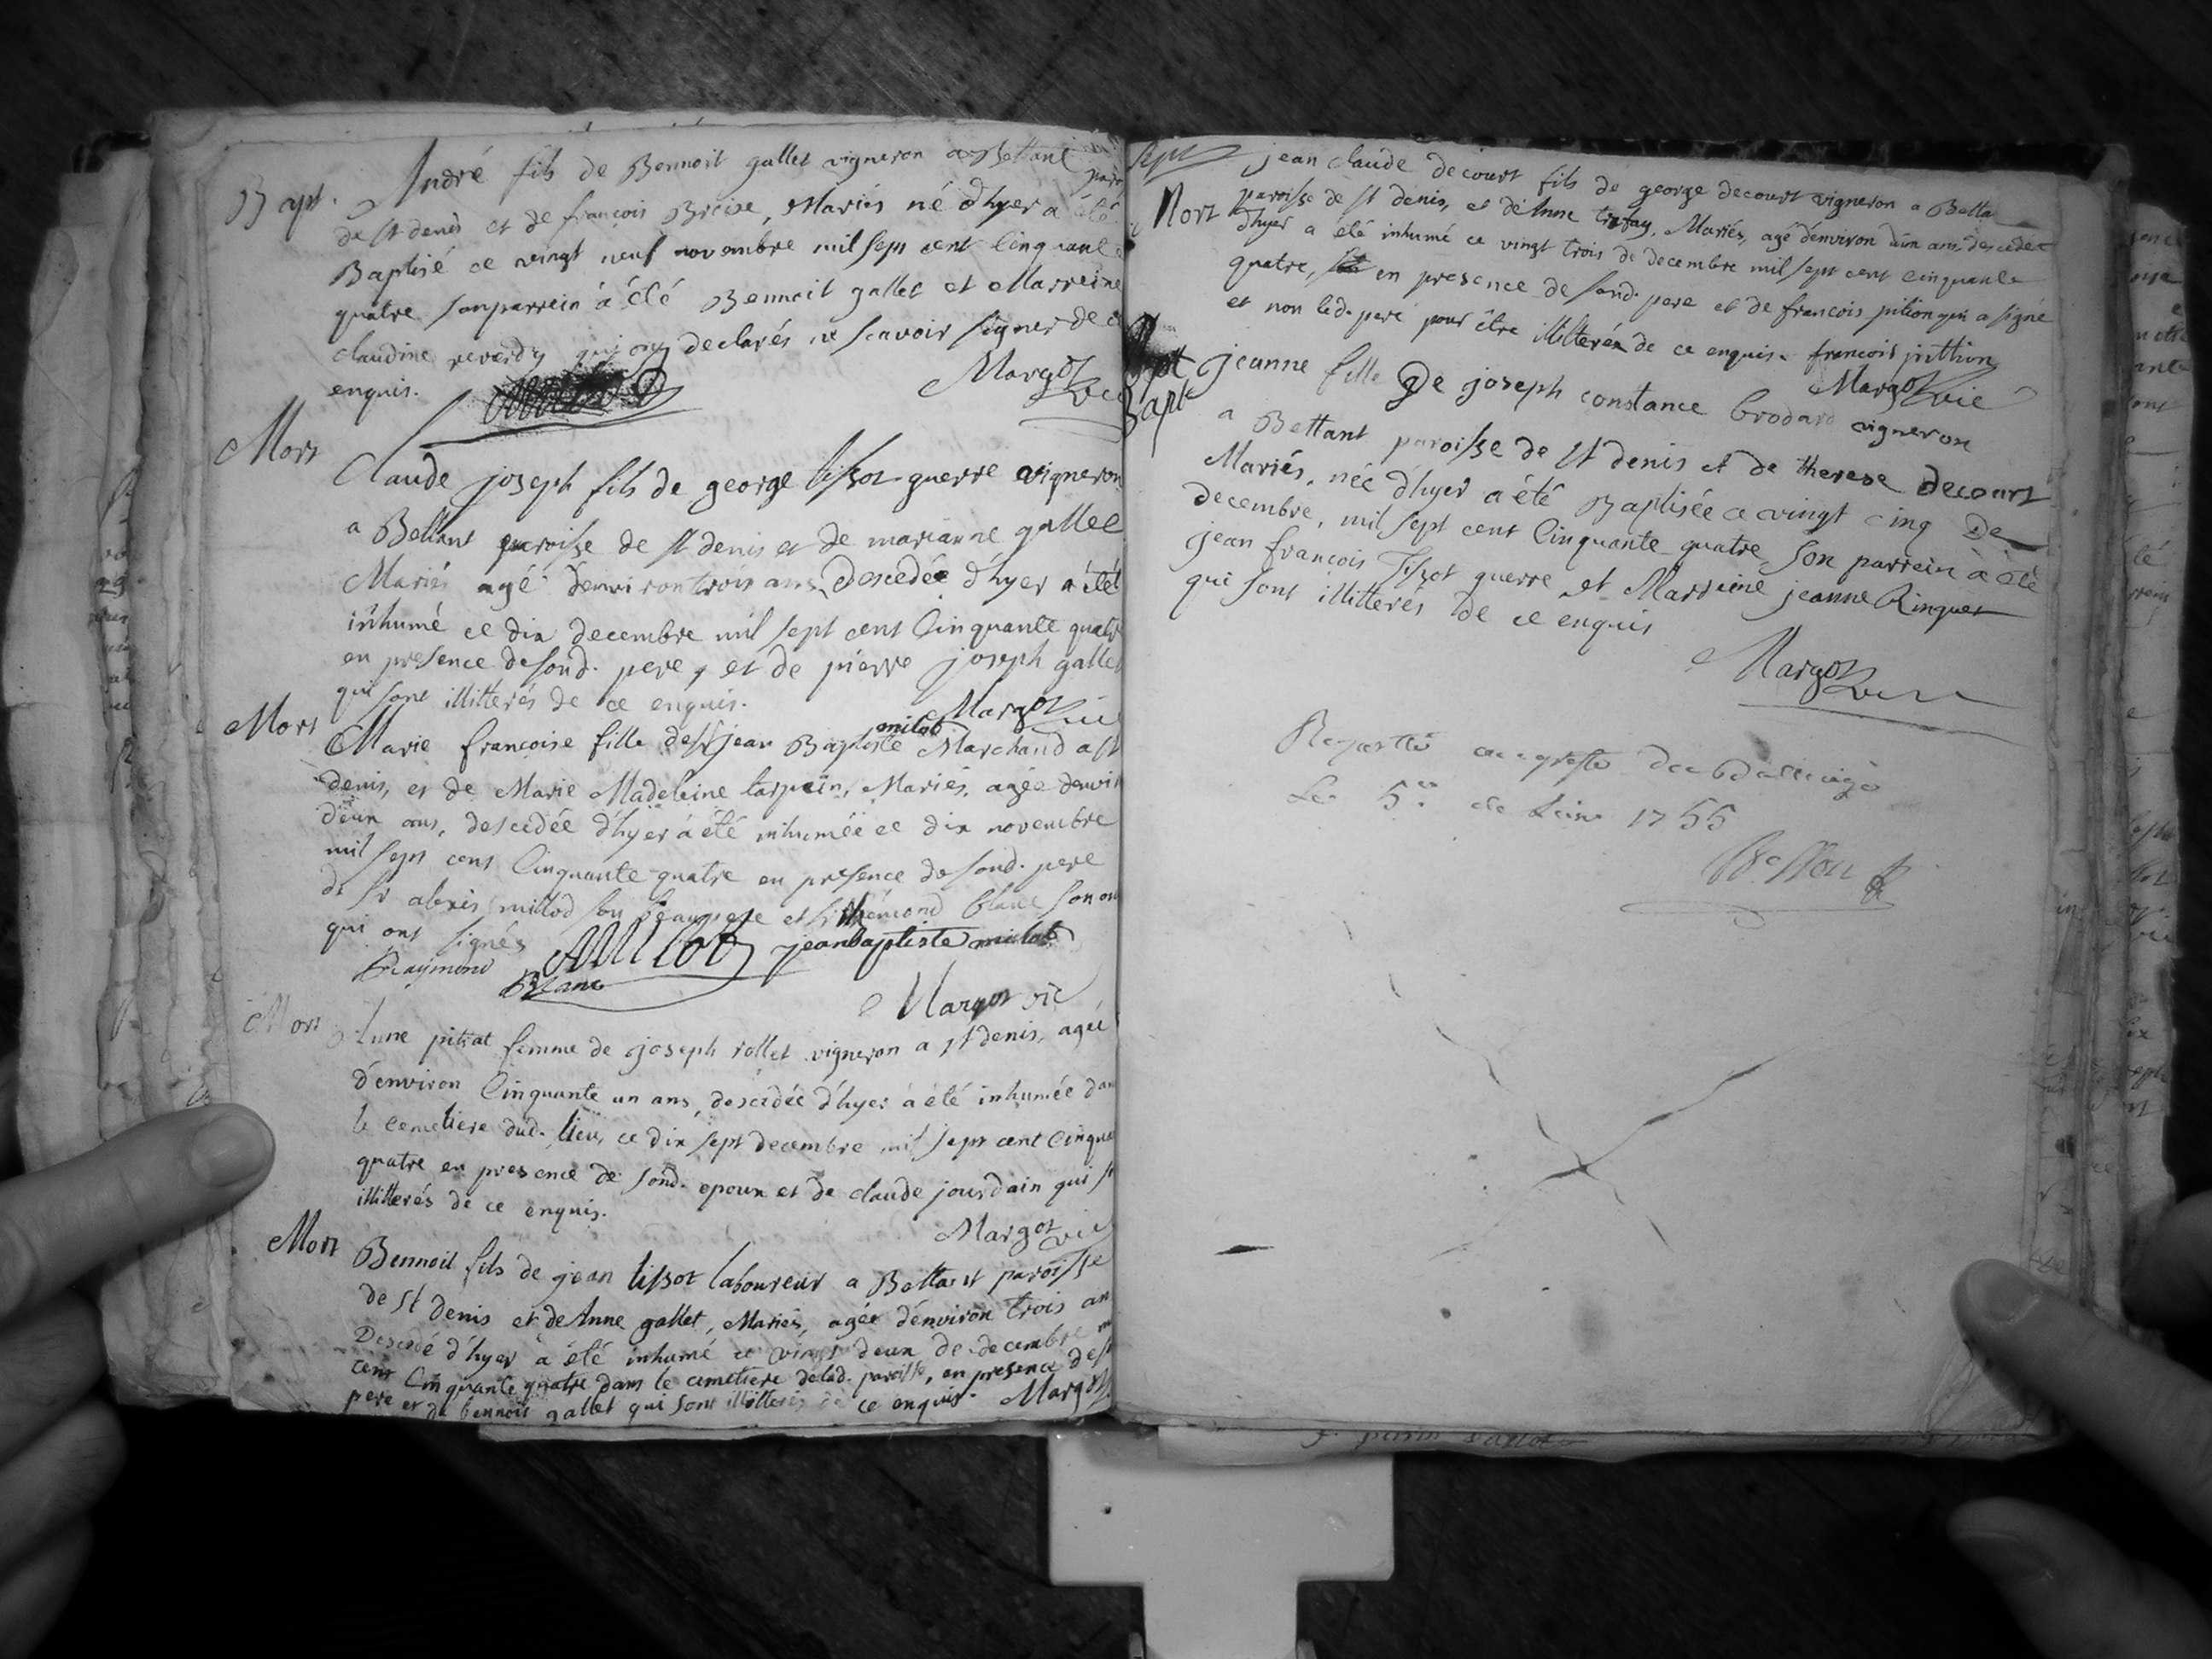 Bapt. André fils de Bennoit gallet vigneron a Bettant paro
de st denis et de françois Breise, Mariés né d'hyer a été
Baptisé ce vingt neuf novembre mil sept cent Cinquante
quatre son parrein a été Bennoit gallet et Marreine
claudine reverdy qui ont declarés ne scavoir signer de ce
enquis. Margot vic
Mort Claude joseph fils de george tissot guerre vigneron
a Bettant paroisse de st denis et de marianne gallet
Mariés agé d'environ trois ans, descedée d'hyer a été
inhumé ce dix decembre mil sept cent Cinquante quatre
en presence de sond. pere, et de pierre joseph gallet
qui sont illitterés de ce enquis. Margot vic
milot
Mort Marie françoise fille de sr jean Baptiste Marchand a st
denis, et de Marie Madeleine tarpein, Mariés, agée denvir
deux ans, descedée d'hyer a été inhumée ce dix novembre
mil sept cens Cinquante quatre en presence de sond. pere
de sr alexis millod son beaupere et sr Rémond blanc son on
qui ont signés Millot jeanbaptiste milot
Raymond Blanc
Margot vic
Mort Anne pitrat femme de joseph rollet vigneron a st denis, agée
d'environ Cinquante un ans, descedée d'hyer a été inhumée dans
le cemetiere dud. lieu, ce dix sept decembre mil sept cent Cinqua
quatre en presence de sond. epoux et de claude jourdain qui st
illitterés de ce enquis.
Margot vic
Mort Bennoit fils de jean tissot laboureur a Bettant paroisse
de st denis et de Anne gallet, Mariés, agée d'environ trois an
Descedé d'hyer a été inhumé ce vingt deux de decembre m
cent Cinquante quatre dans le cemetiere delad. paroisse, en presence de so
pere et de bennoit gallet qui sont illitterés de ce enquis. Margot
sept jean claude decourt fils de george decourt vigneron a Betta
Mort paroisse de st denis, et de Anne trefay, Mariés, agé d'environ d'un ans, descedée
d'hyer a été inhumé ce vingt trois de decembre mil sept cent cinquante
quatre, en presence de sond. pere et de francois pition qui a signé
et non led. pere pour être illitterés de ce enquis. francois pitthion
Margot vic
Bapt jeanne fille De joseph constance brodard vigneron
a Bettant paroisse de st denis et de therese decourt
Mariés, née d'hyer a été Baptisée ce vingt cinq De
decembre, mil sept cent Cinquante quatre, son parrein a été
jean francois Tissot guerre et Marreine jeanne Ringuet
qui sont illitterés de ce enquis
Margot vic
au greffe
Le 5e de 1755